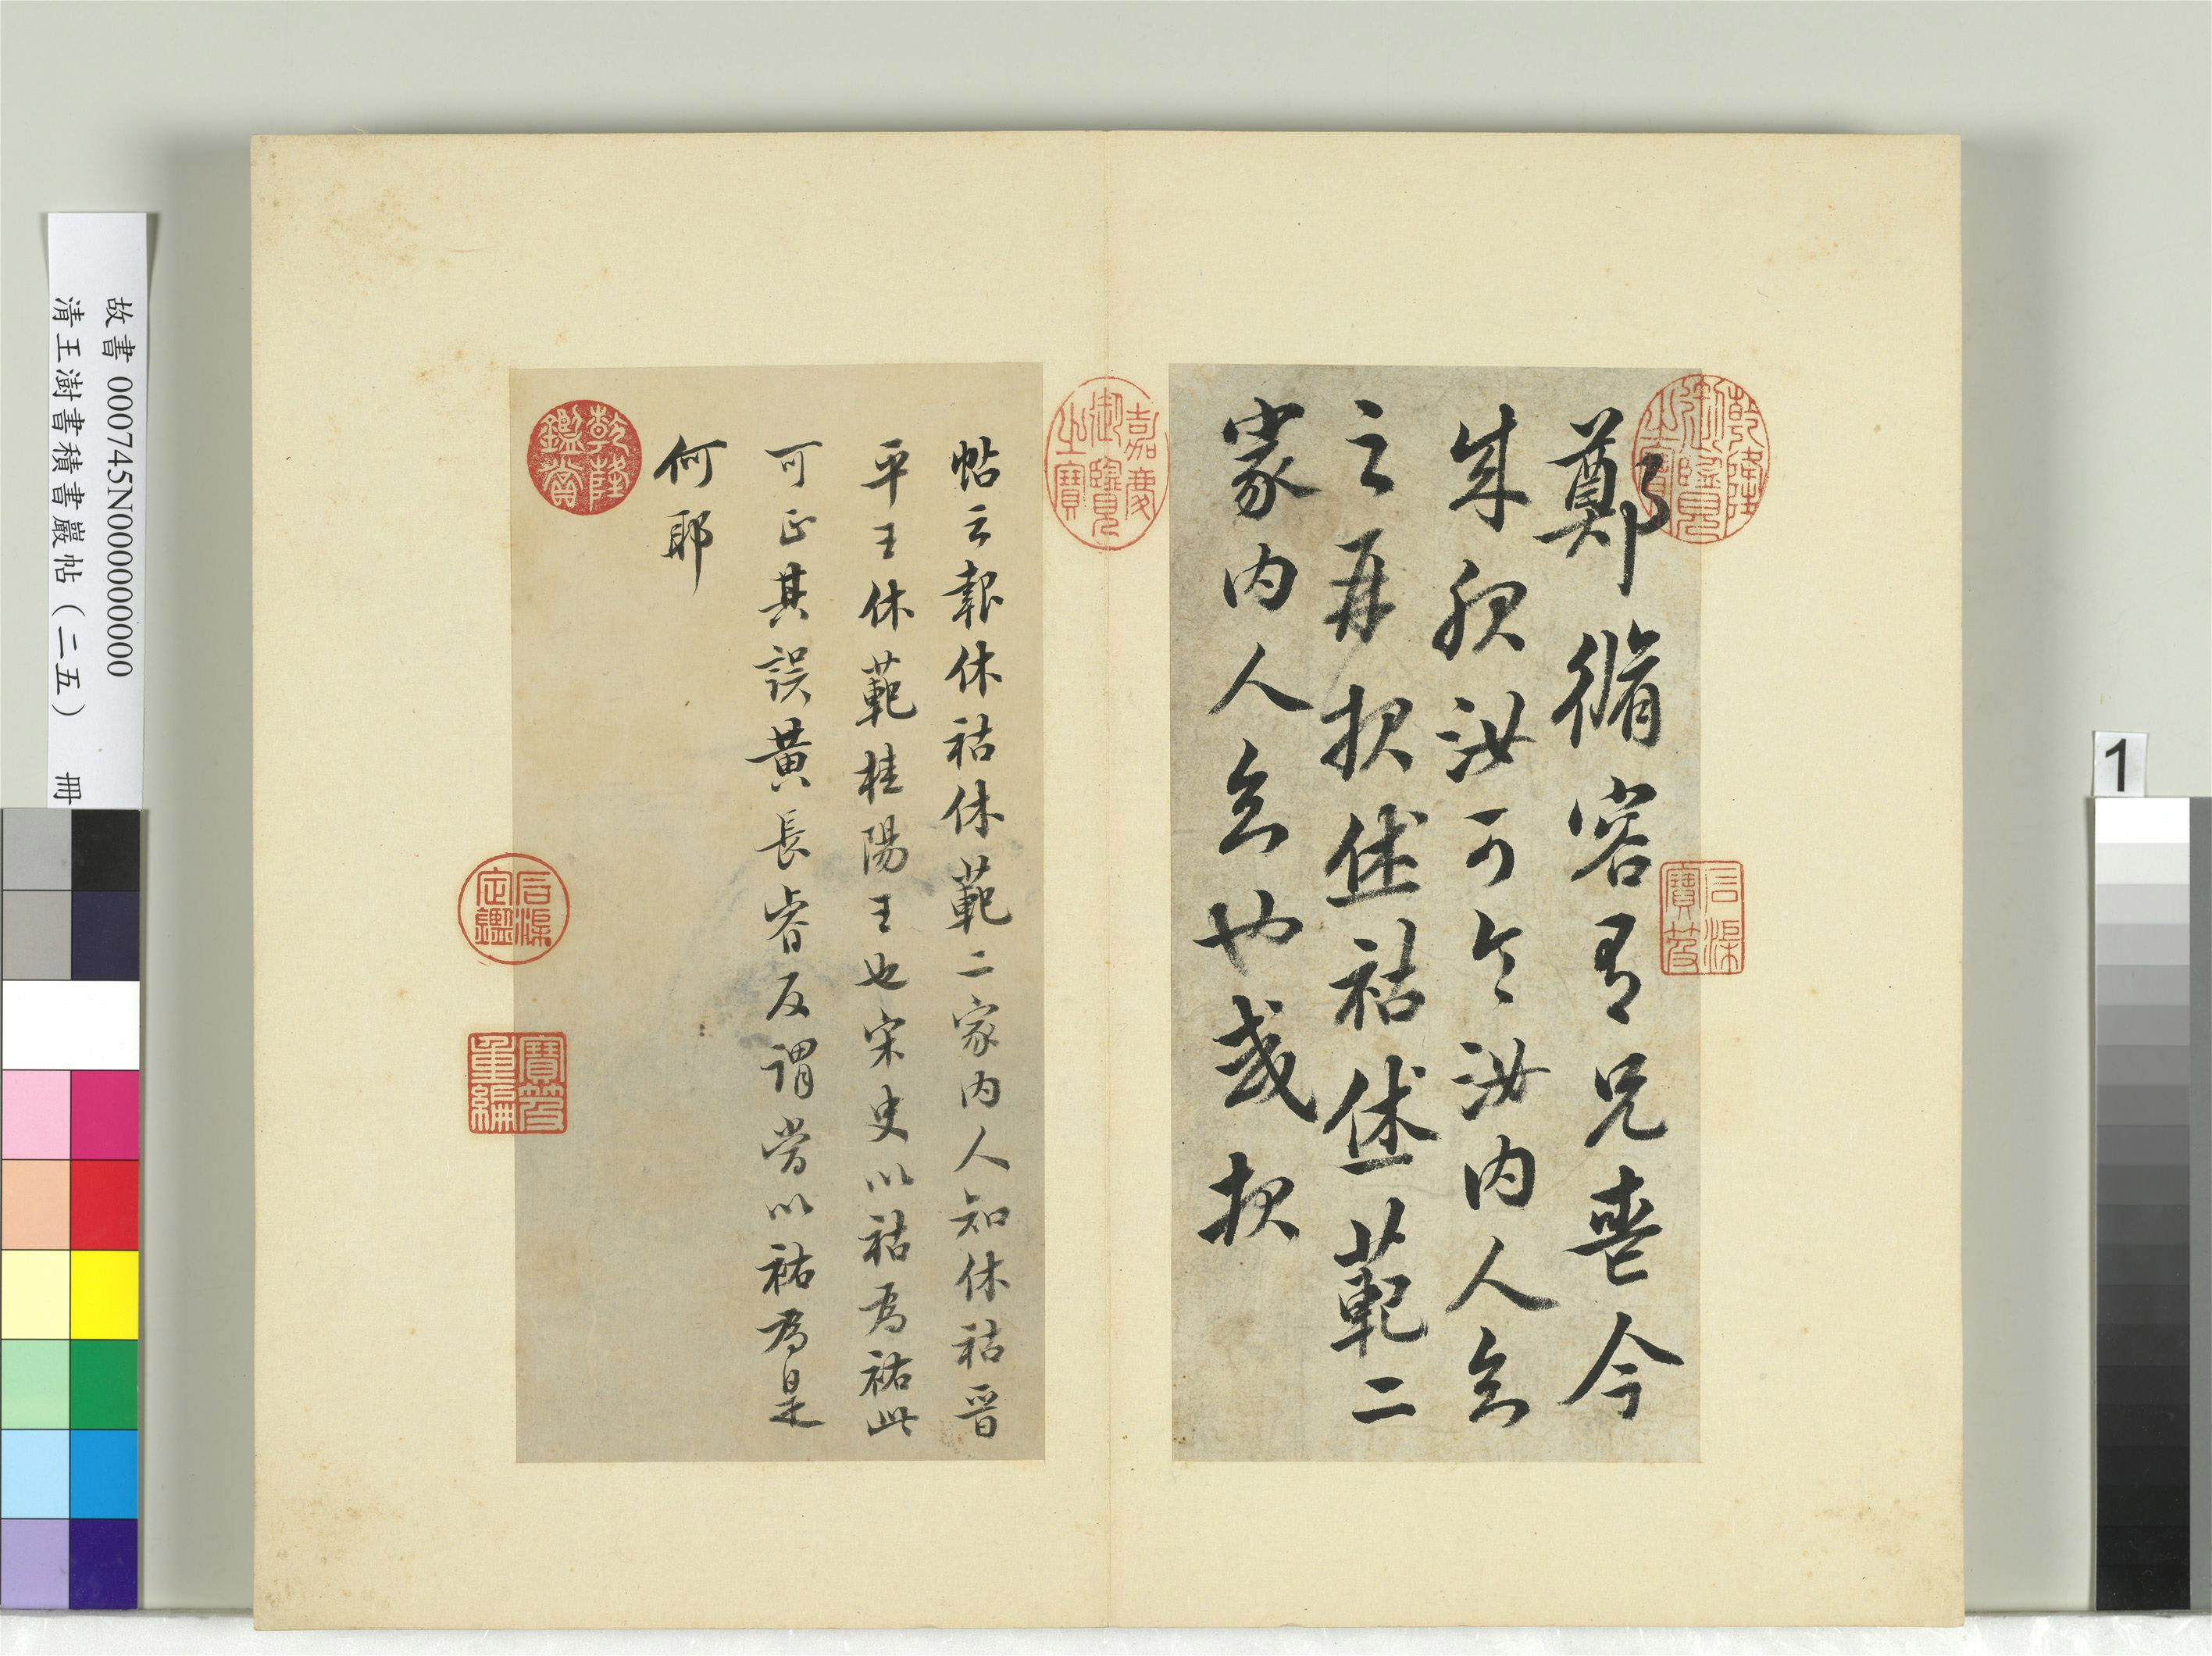 乾隆御覽之寶
石渠寶笈
鄭脩容有兄喪今
成服汝可令汝内人知
之再报烋祜烋範二
家内人知也彧报
嘉慶御覽之寶
帖云報休祜休範二家内人知休祜晉
平王休範桂陽王也宋史以祜為祐此
可正其誤黄長睿反謂當以祐為是
何耶
乾隆鑑賞
石渠定鑑
寶笈重編
故書 000745N000000000
清王澍書積書巖帖(二五) 冊
1